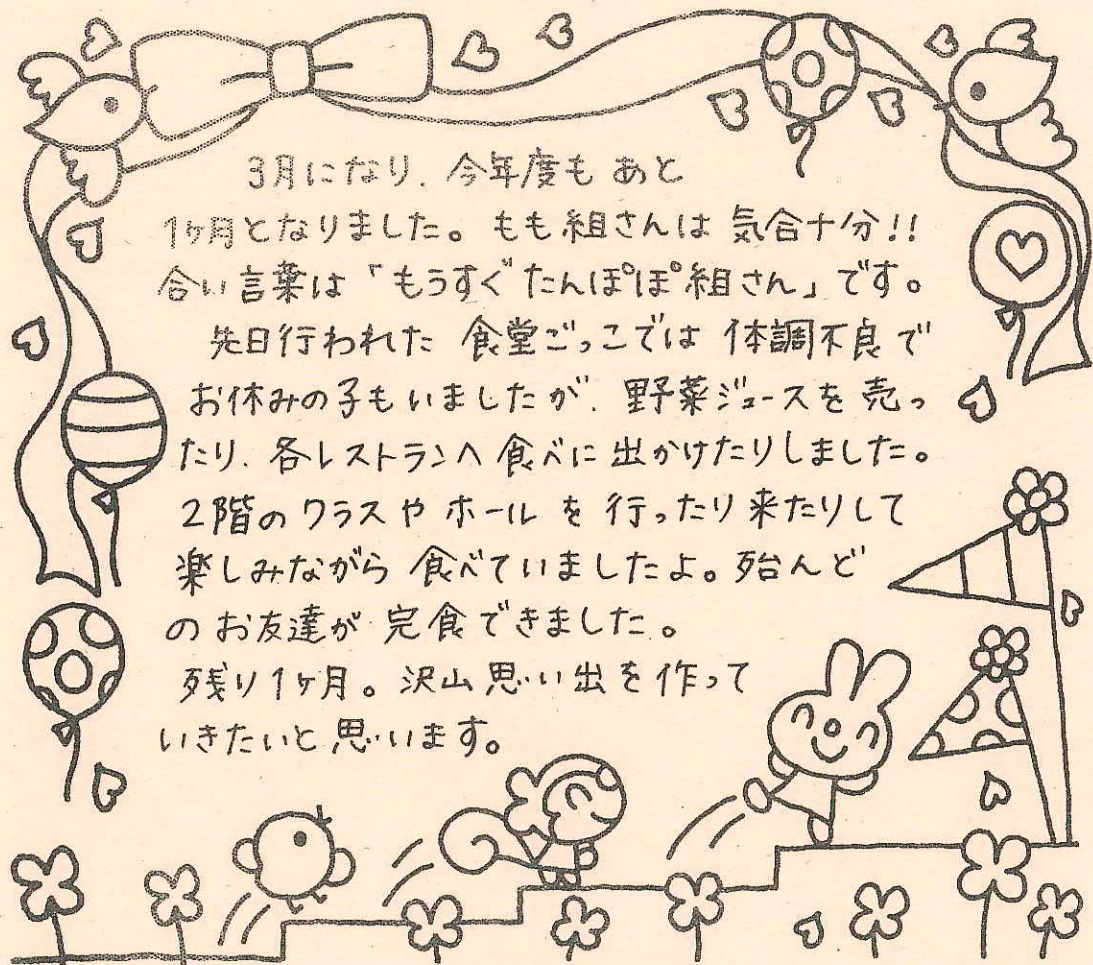 3月になり、今年度もあと
1ヶ月となりました。もも組さんは気合十分!!
合い言葉は「もうすぐたんぽぽ組さん」です。
先日行われた食堂ごっこでは体調不良で
お休みの子もいましたが、野菜ジュースを売っ
たり、各レストランへ食べに出かけたりしました。
2階のクラスやホールを行ったり来たりして
楽しみながら食べていましたよ。殆んど
のお友達が完食できました。
残り1ヶ月。沢山思い出を作って
いきたいと思います。